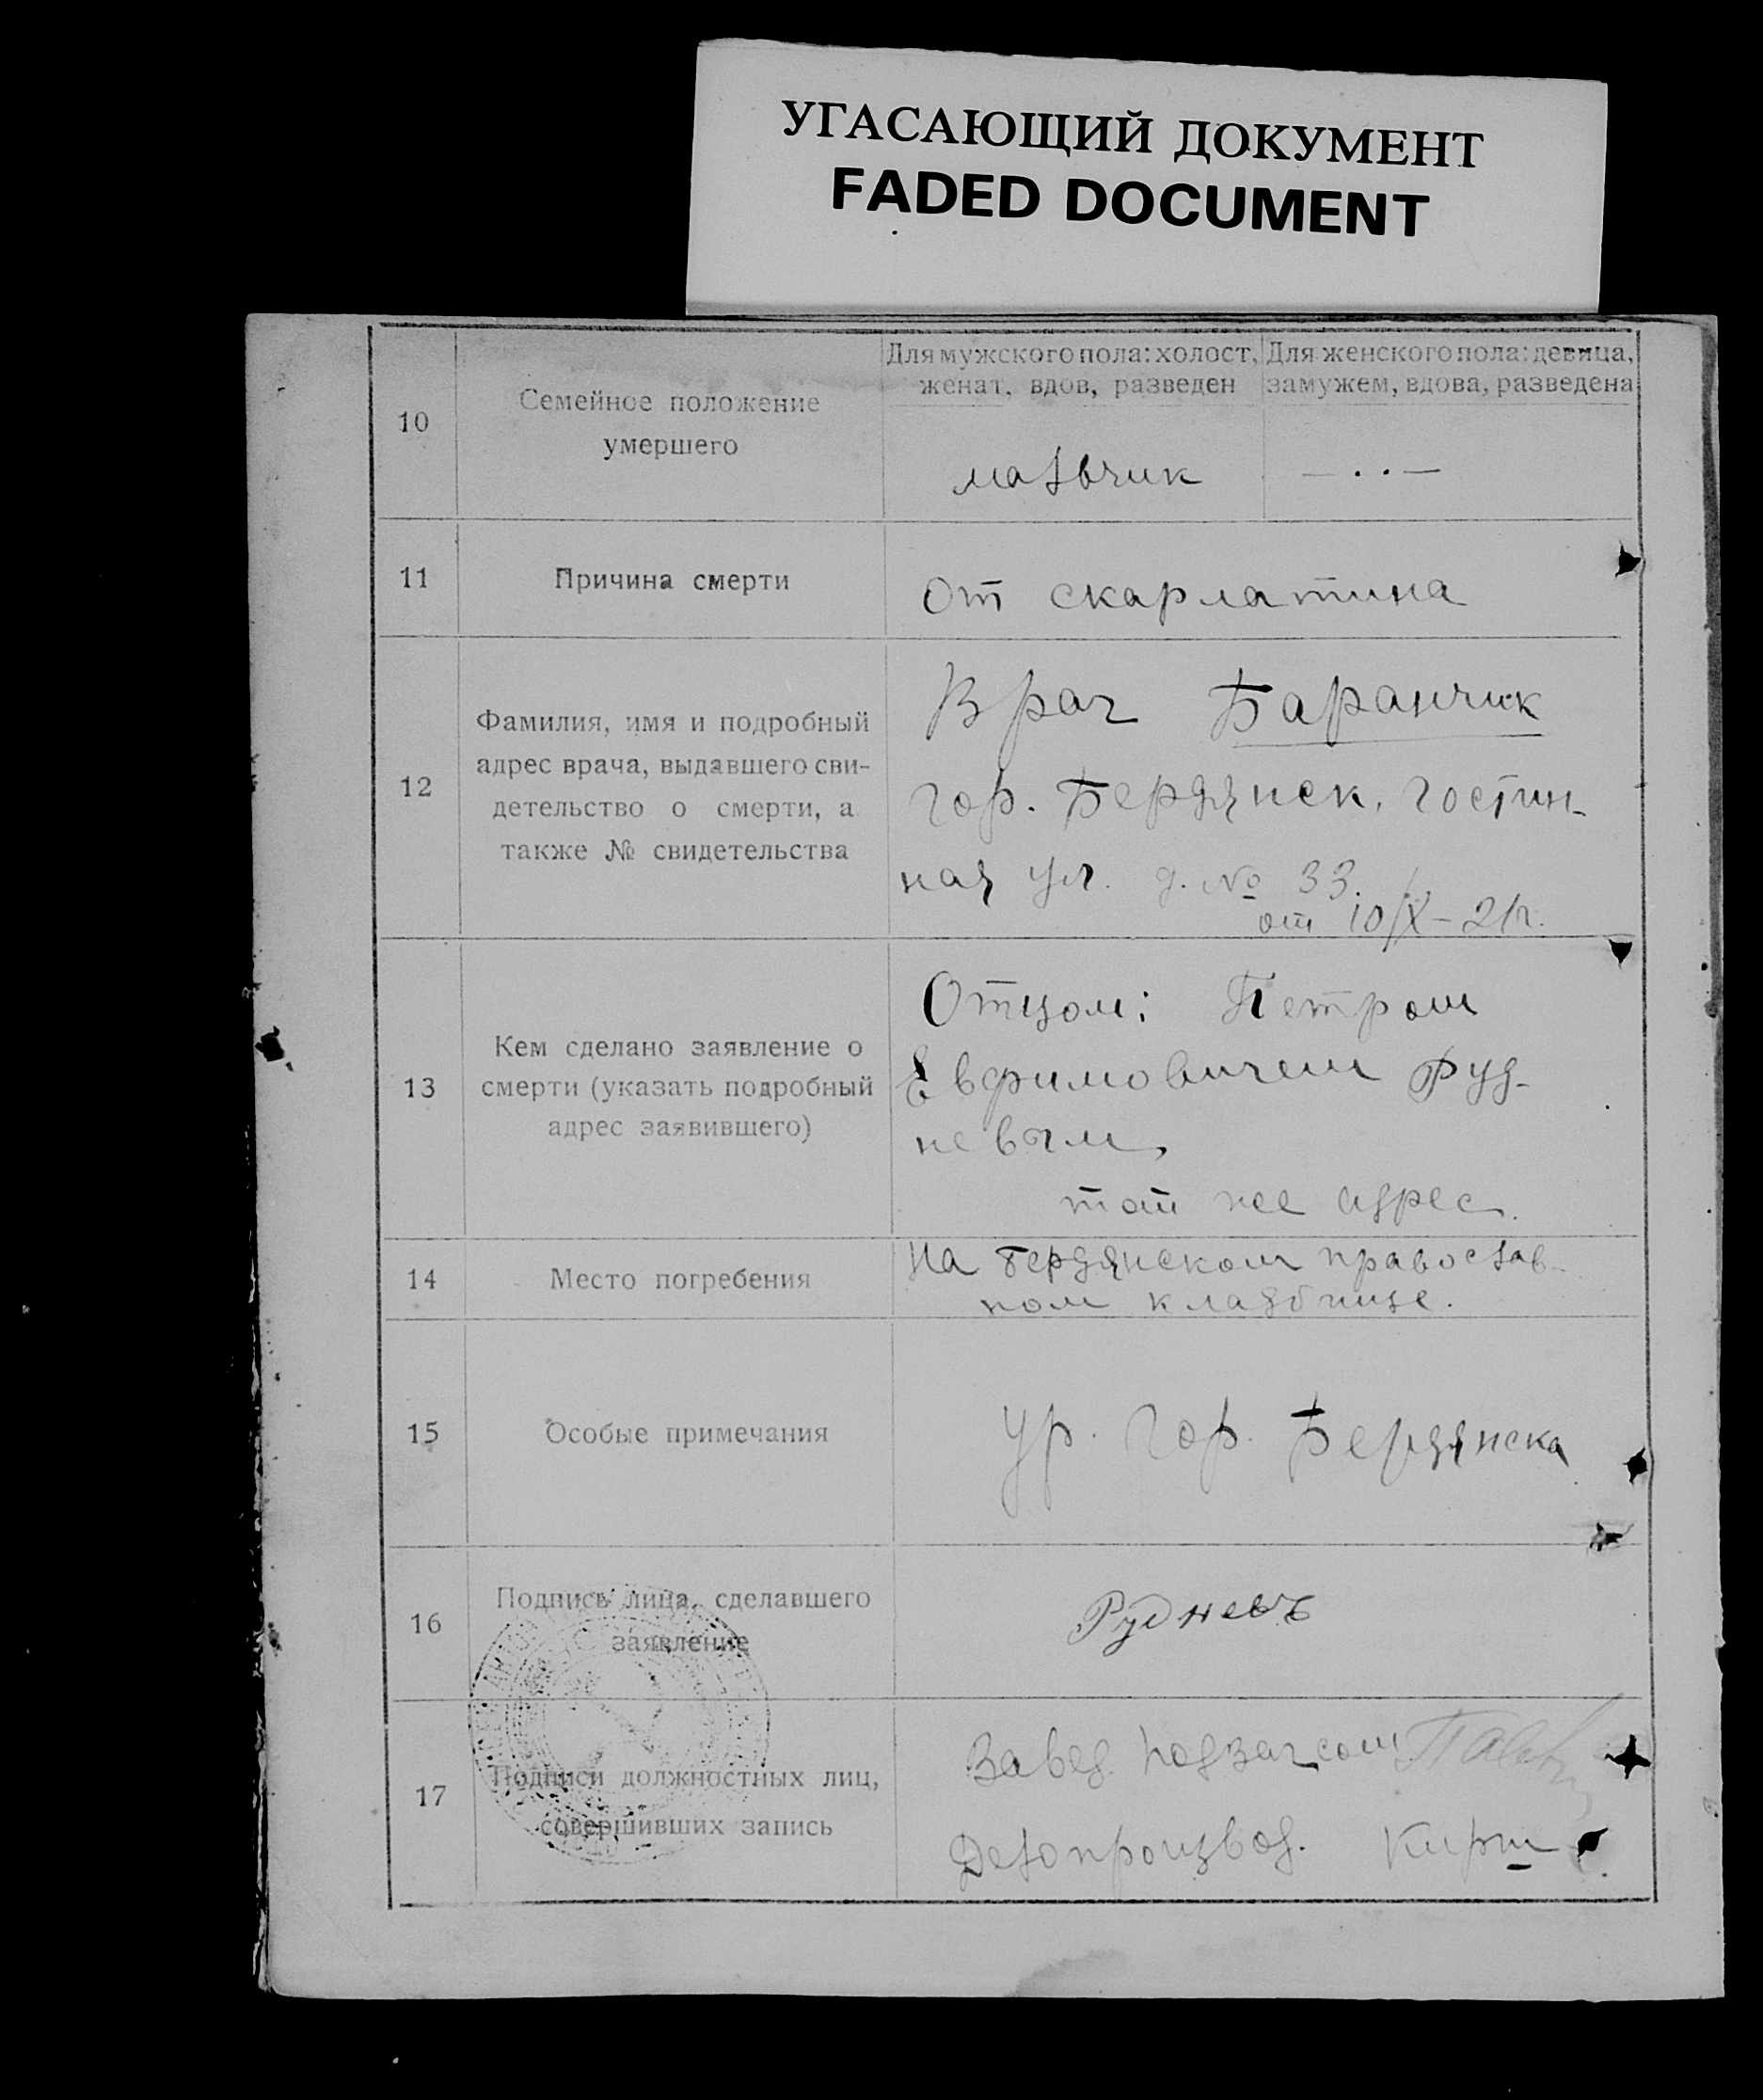 УГАСАЮЩИЙ ДОКУМЕНТ
FADED DOCUMENT
10
Семейное положение
умершего
Для мужского пола: холост,
женат, вдов, разведен
Для женского пола: девица,
замужем, вдова, разведена
мальчик
— · · —
11
Причина смерти
От скарлатина
12
Фамилия, имя и подробный
адрес врача, выдавшего сви-
детельство о смерти, а
также № свидетельства
Врач Баранчик
гор. Бердянск, Гостин-
ная ул. д. № 33.
от 10/X - 21г.
13
Кем сделано заявление о
смерти (указать подробный
адрес заявившего)
Отцом: Петром
Евфимовичем Руд-
невым,
тот же адрес.
14
Место погребения
На Бердянском православ-
ном кладбище.
15
Особые примечания
Ур. гор. Бердянска
16
Подпись лица, сделавшего
заявление
Рудневъ
17
Подписи должностных лиц,
совершивших запись
Завед. подзагсом
Делопроизвод. Кирш